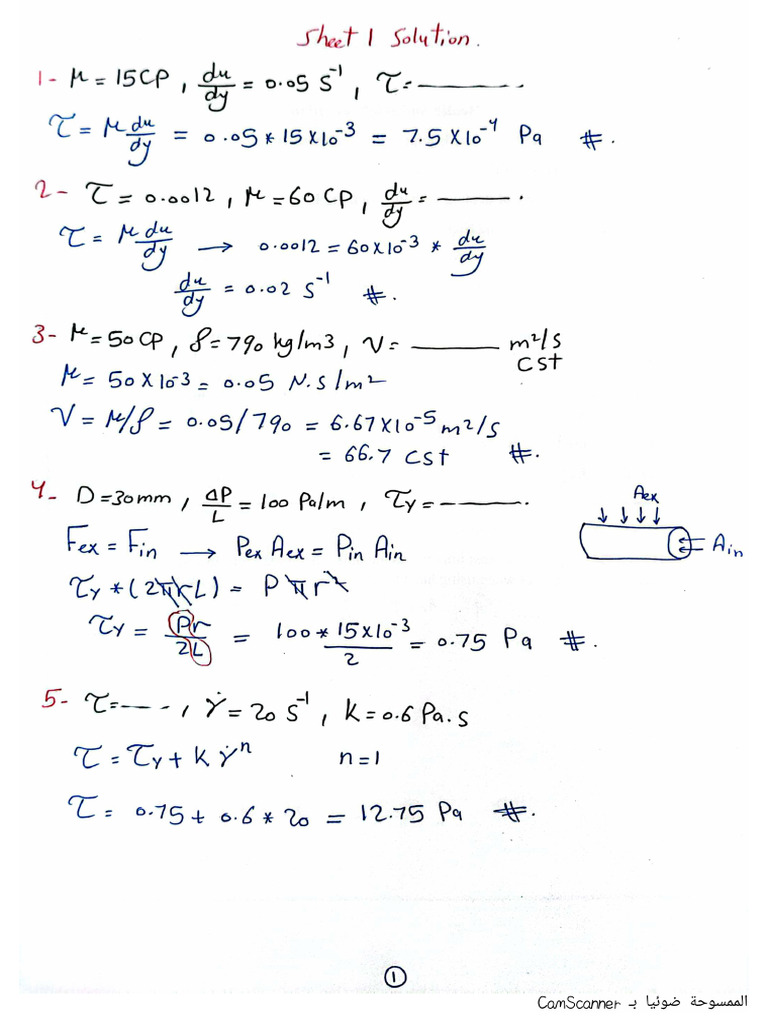 Sheet 1 Solution.
1- μ = 15 CP , du/dy = 0.05 S⁻¹ , τ = ———.
τ = μ du/dy = 0.05 * 15 × 10⁻³ = 7.5 × 10⁻⁴ Pa #.
2- τ = 0.0012 , μ = 60 CP , du/dy = ———.
τ = μ du/dy → 0.0012 = 60 × 10⁻³ * du/dy
du/dy = 0.02 S⁻¹ #.
3- μ = 50 CP , ρ = 790 kg/m3 , ν = ——— m²/s
cst
μ = 50 × 10⁻³ = 0.05 N.S/m²
ν = μ/ρ = 0.05/790 = 6.67 × 10⁻⁵ m²/s
= 66.7 cst #.
4- D = 30mm , ΔP/L = 100 Pa/m , τy = ———.
Aex
Fex = Fin → Pex Aex = Pin Ain
Ain
τy * (2πrL) = P π r²
τy = Pr/2L = 100 * 15 × 10⁻³/2 = 0.75 Pa #.
5- τ = ---- , γ̇ = 20 S⁻¹ , k = 0.6 Pa.s
τ = τy + k γ̇ⁿ n = 1
τ = 0.75 + 0.6 * 20 = 12.75 Pa #.
1
الممسوحة ضوئيا بـ CamScanner